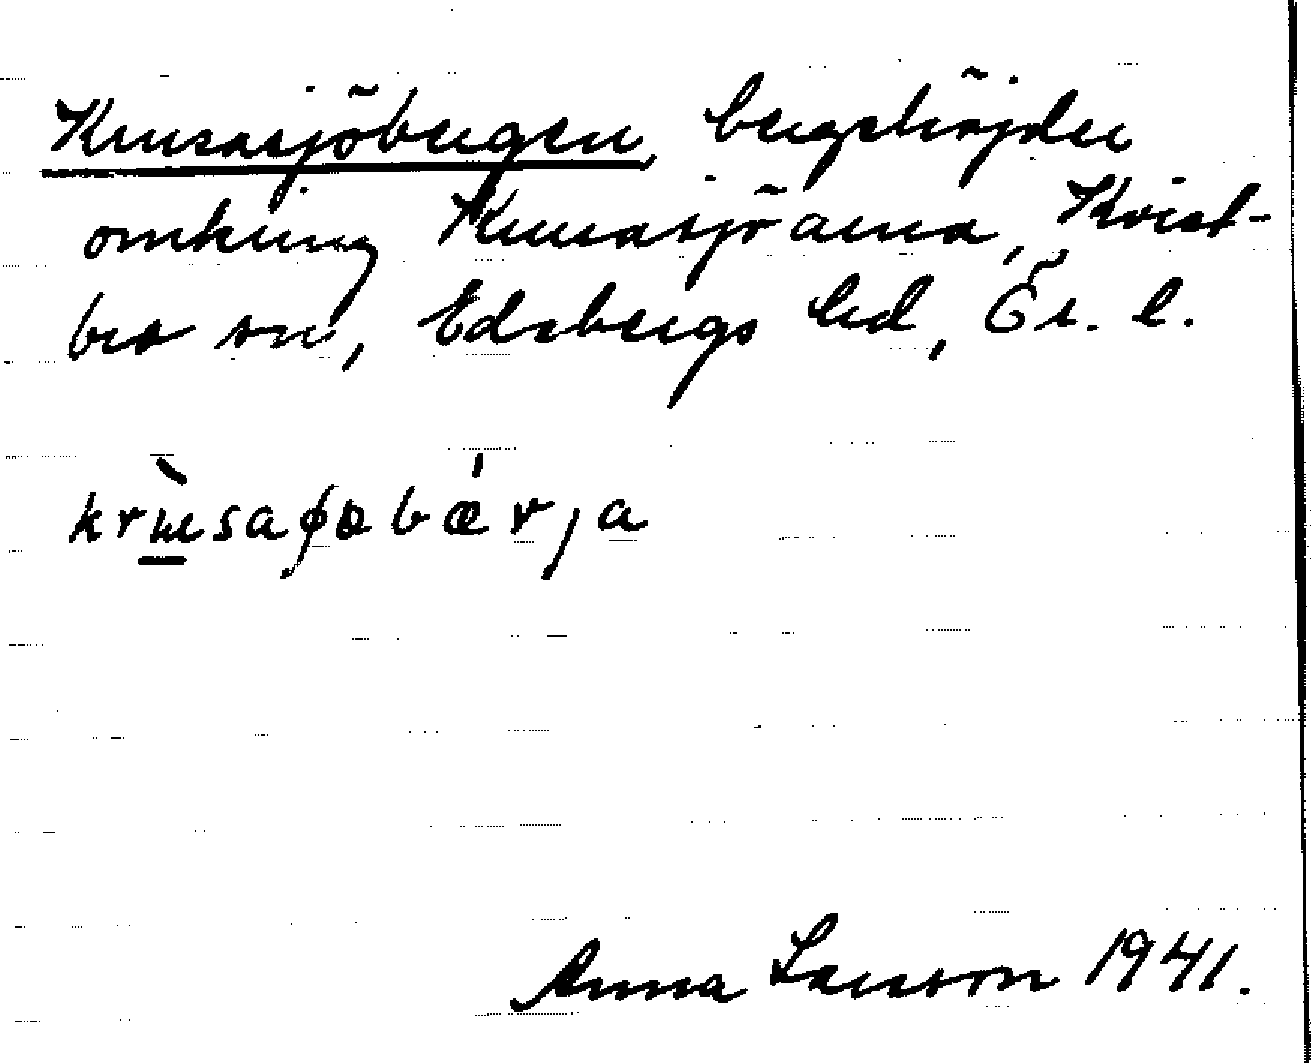 Krusasjöbergen, bergshöjder
omkring Krusasjöarna, Kvist-
bro sn, Edsbergs hd, Ör. l.
krɯ̀saʃɷbǽrja
Anna Larsson 1941.